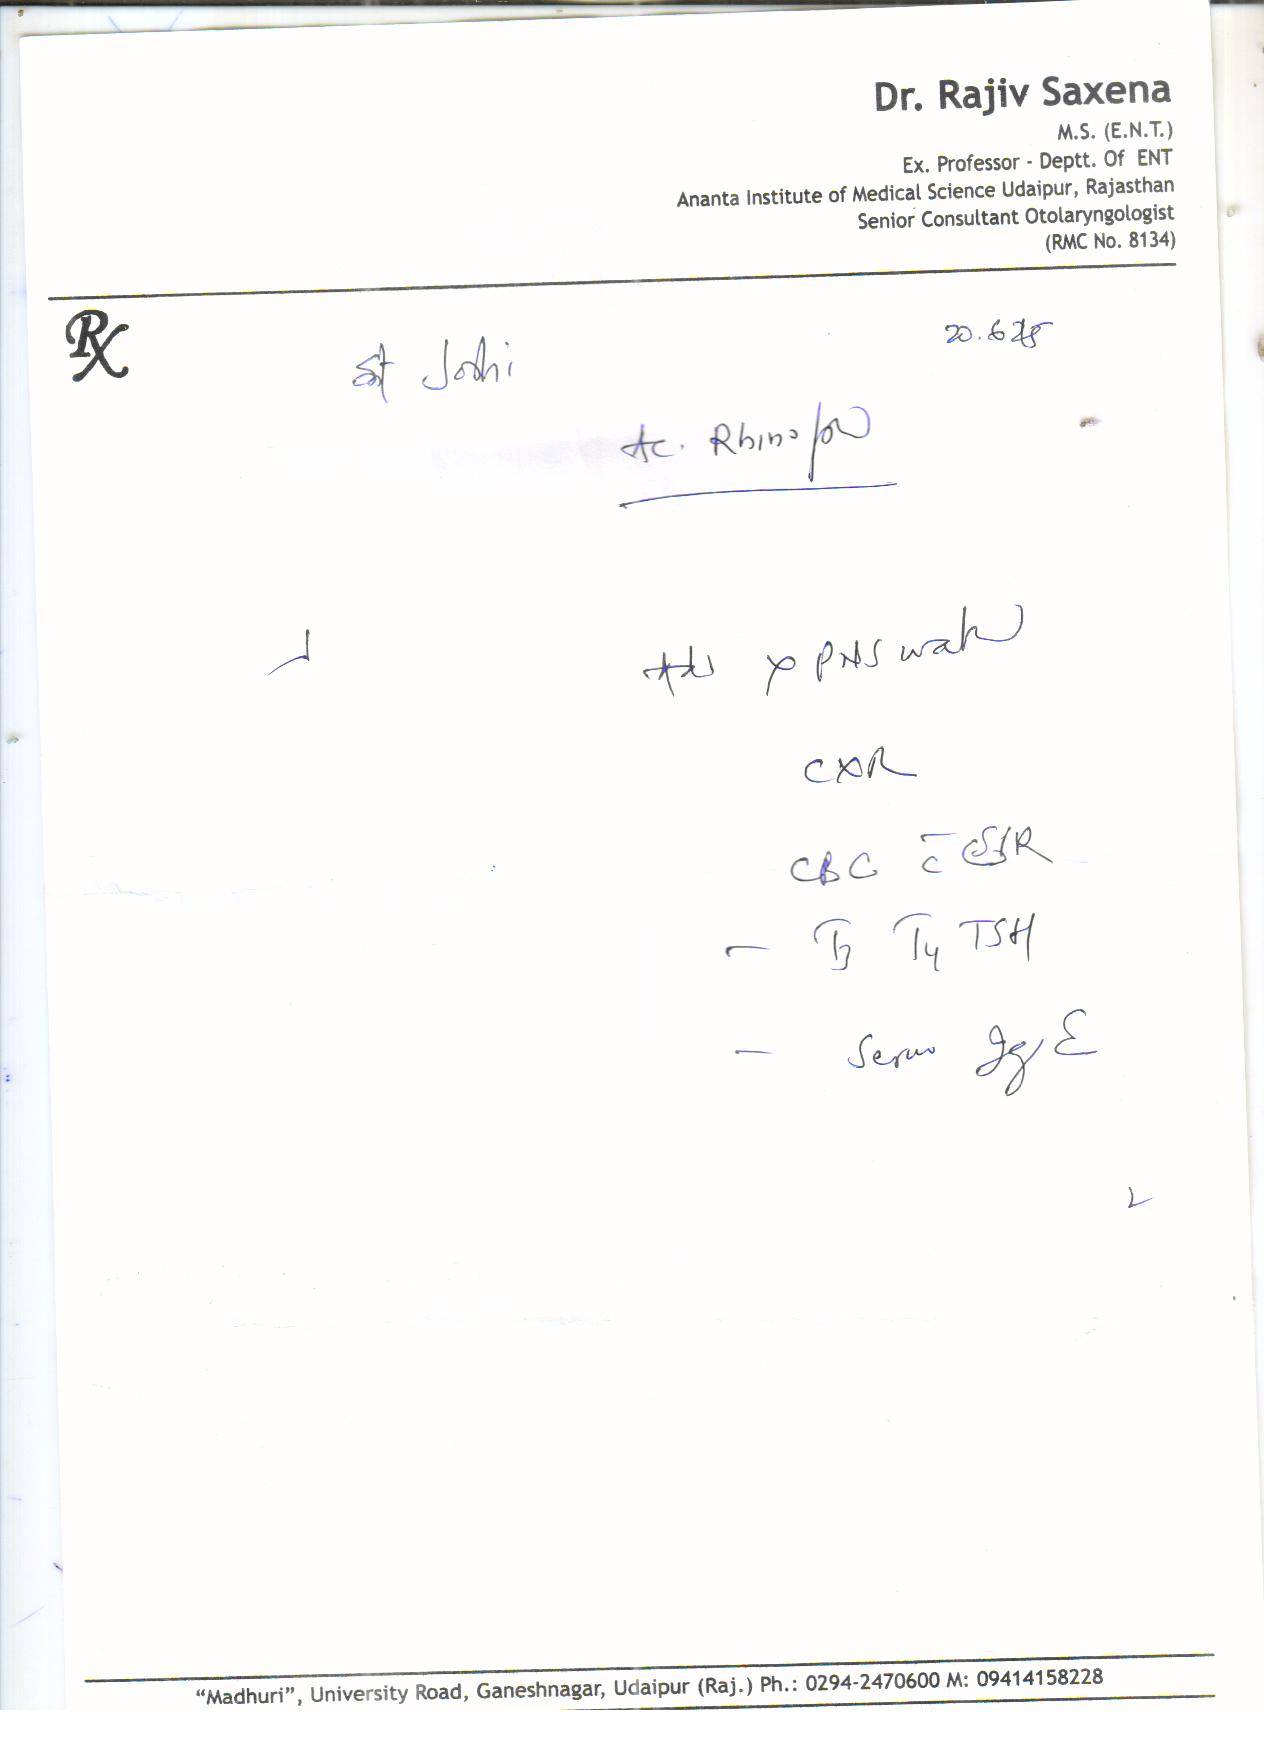 Dr. Rajiv Saxena
M.S. (E.N.T.)
Ex. Professor - Deptt. Of ENT
Ananta Institute of Medical Science Udaipur, Rajasthan
Senior Consultant Otolaryngologist
(RMC No. 8134)
Rx
20.6.25
Joshi
Ac. Rhino
Adv X PNS
CXR
CBC c̄ ESR
- T3 T4 TSH
- Serum IgE
"Madhuri", University Road, Ganeshnagar, Udaipur (Raj.) Ph.: 0294-2470600 M: 09414158228